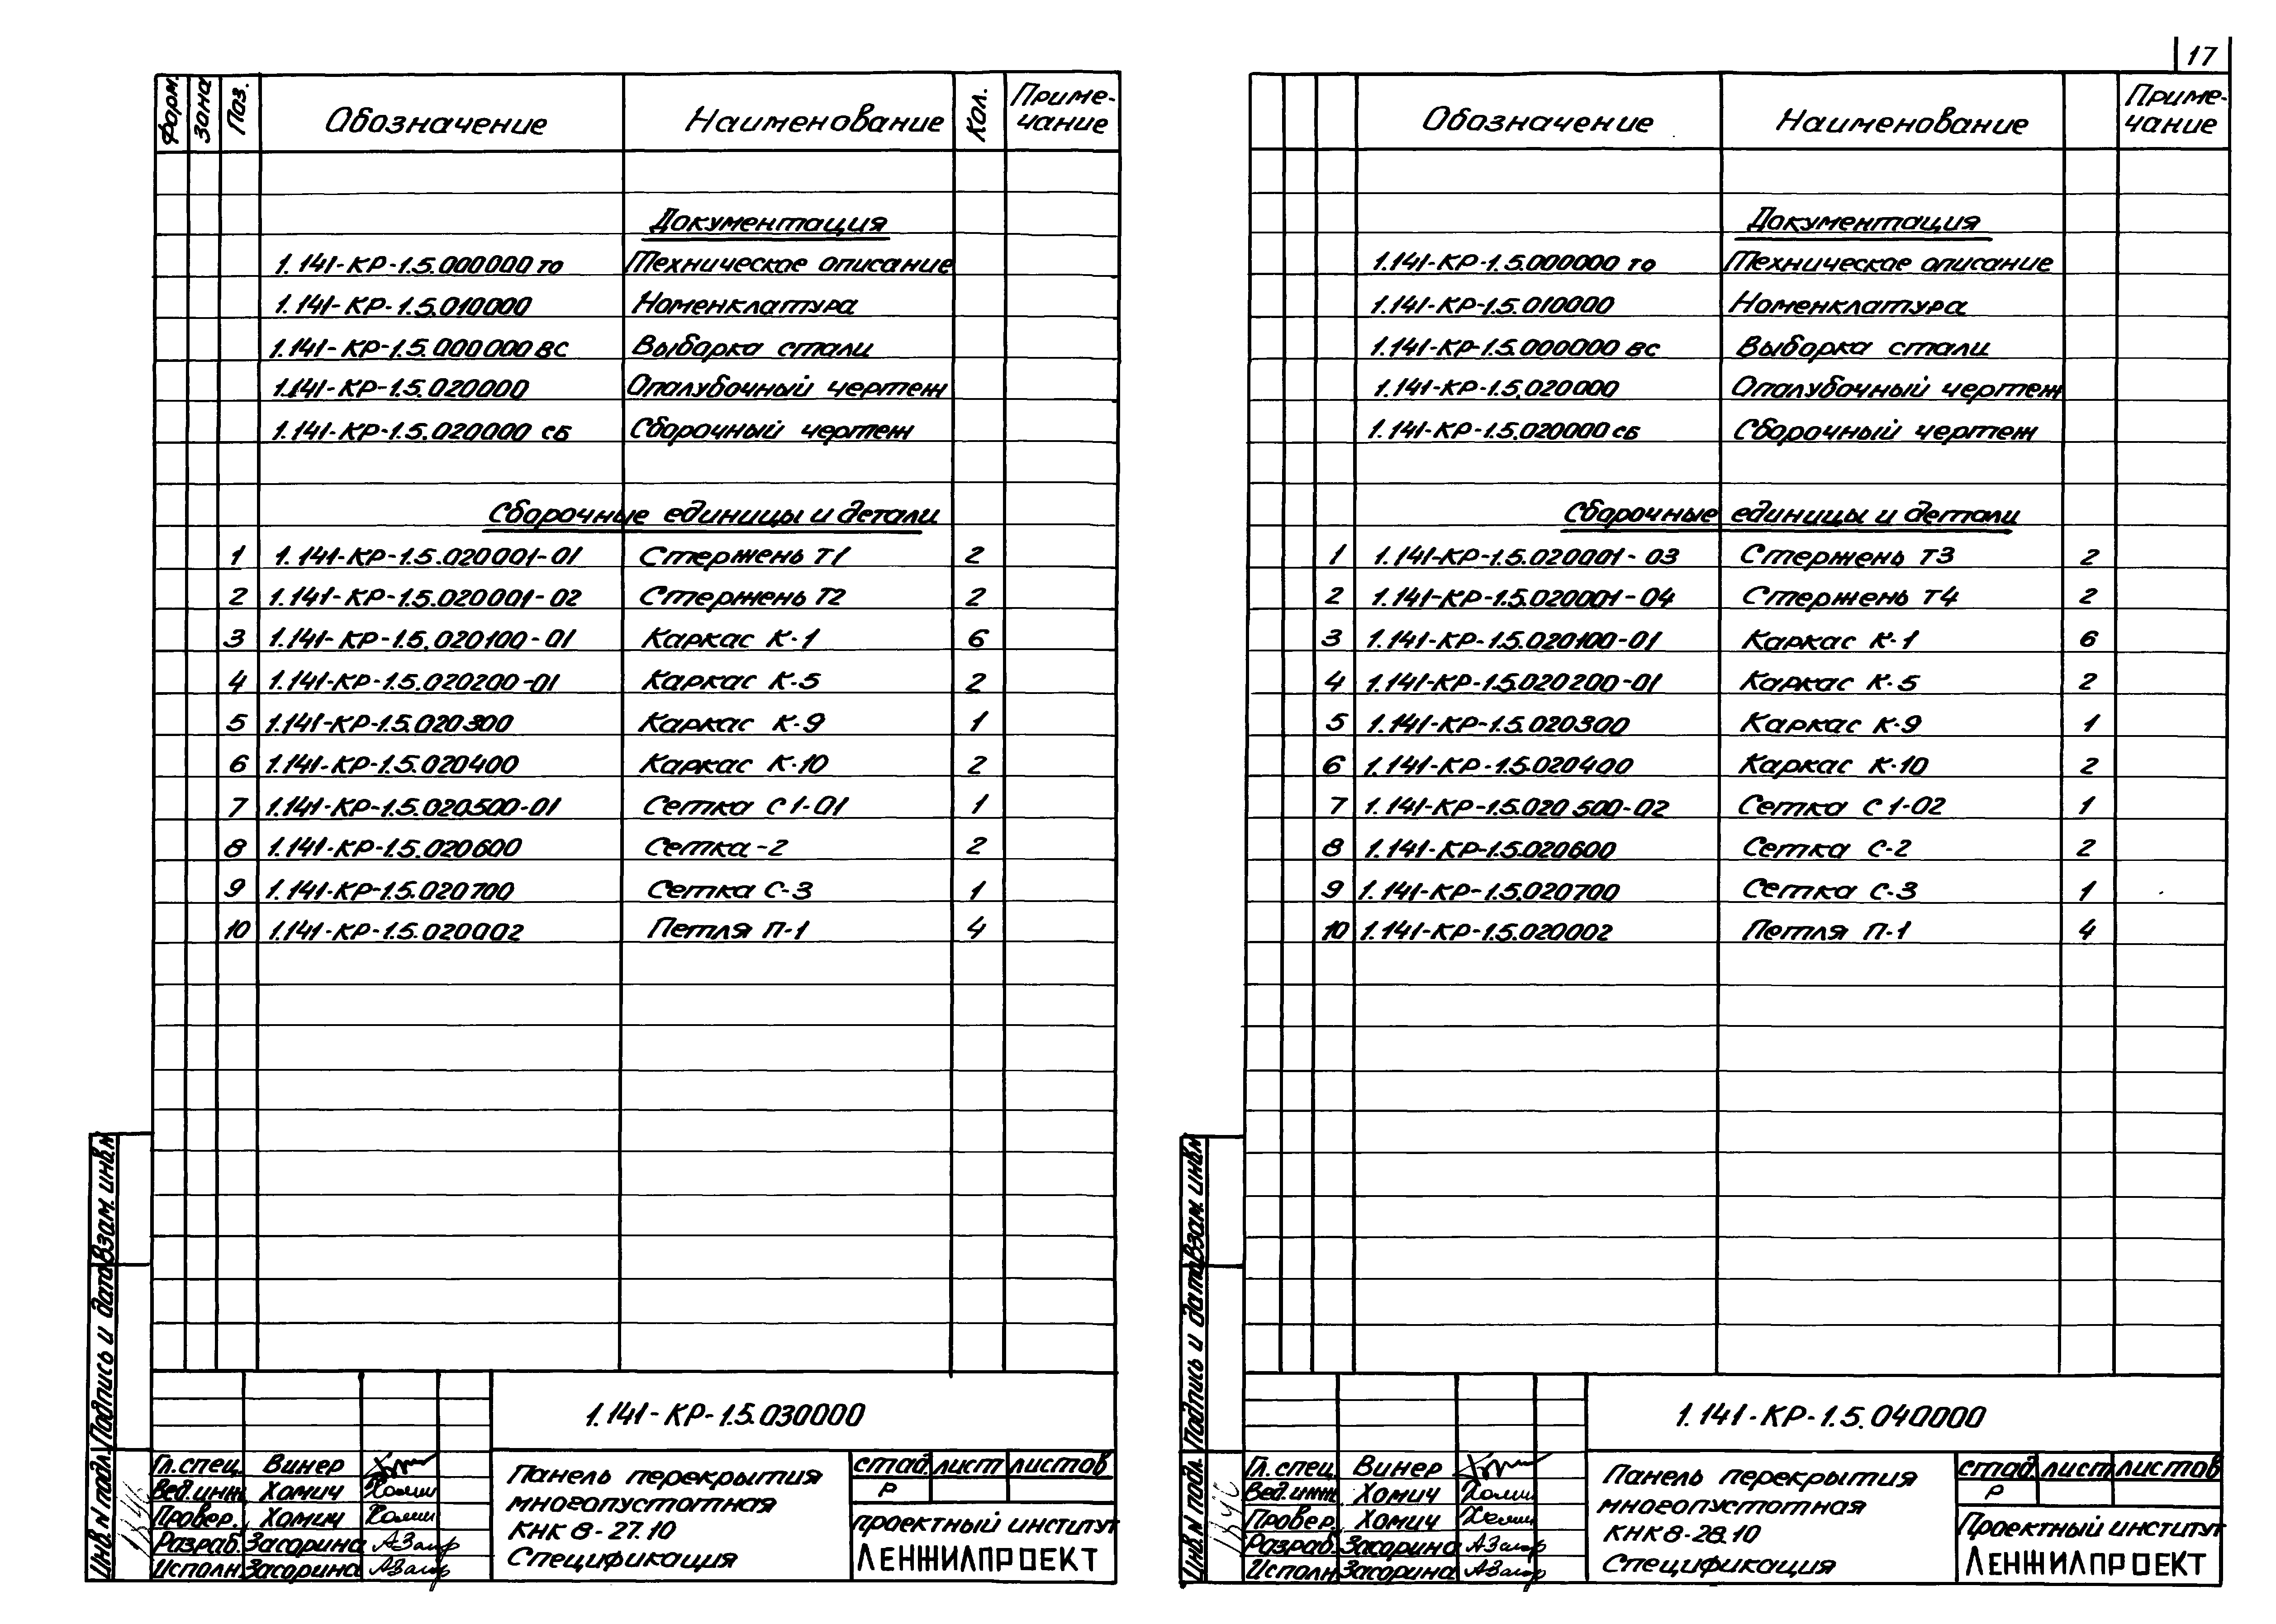 17
Форм. Зона Поз. Обозначение Наименование Кол. Приме-
чание
Документация
1.141-КР-1.5.000000 ТО Техническое описание
1.141-КР-1.5.010000 Номенклатура
1.141-КР-1.5.000000 ВС Выборка стали
1.141-КР-1.5.020000 Опалубочный чертеж
1.141-КР-1.5.020000 СБ Сборочный чертеж
Сборочные единицы и детали
1 1.141-КР-1.5.020001-01 Стержень Т1 2
2 1.141-КР-1.5.020001-02 Стержень Т2 2
3 1.141-КР-1.5.020100-01 Каркас К-1 6
4 1.141-КР-1.5.020200-01 Каркас К-5 2
5 1.141-КР-1.5.020300 Каркас К-9 1
6 1.141-КР-1.5.020400 Каркас К-10 2
7 1.141-КР-1.5.020500-01 Сетка С1-01 1
8 1.141-КР-1.5.020600 Сетка-2 2
9 1.141-КР-1.5.020700 Сетка С-3 1
10 1.141-КР-1.5.020002 Петля П-1 4
Инв.N подл. Подпись и дата Взам.инв.N
1.141-КР-1.5.030000
Гл.спец. Винер
Вед.инж. Хомич
Провер. Хомич
Разраб. Засорина
Исполн. Засорина
Панель перекрытия
многопустотная
КНК 8-27.10
Спецификация
стад. лист листов
Р
проектный институт
ЛЕНЖИЛПРОЕКТ
Обозначение Наименование Приме-
чание
Документация
1.141-КР-1.5.000000 ТО Техническое описание
1.141-КР-1.5.010000 Номенклатура
1.141-КР-1.5.000000 ВС Выборка стали
1.141-КР-1.5.020000 Опалубочный чертеж
1.141-КР-1.5.020000 СБ Сборочный чертеж
Сборочные единицы и детали
1 1.141-КР-1.5.020001-03 Стержень Т3 2
2 1.141-КР-1.5.020001-04 Стержень Т4 2
3 1.141-КР-1.5.020100-01 Каркас К-1 6
4 1.141-КР-1.5.020200-01 Каркас К-5 2
5 1.141-КР-1.5.020300 Каркас К-9 1
6 1.141-КР-1.5.020400 Каркас К-10 2
7 1.141-КР-1.5.020500-02 Сетка С1-02 1
8 1.141-КР-1.5.020600 Сетка С-2 2
9 1.141-КР-1.5.020700 Сетка С-3 1
10 1.141-КР-1.5.020002 Петля П-1 4
Инв.N подл. Подпись и дата Взам.инв.N
1.141-КР-1.5.040000
Гл.спец. Винер
Вед.инж. Хомич
Провер. Хомич
Разраб. Засорина
Исполн. Засорина
Панель перекрытия
многопустотная
КНК 8-28.10
Спецификация
стад. лист листов
Р
Проектный институт
ЛЕНЖИЛПРОЕКТ